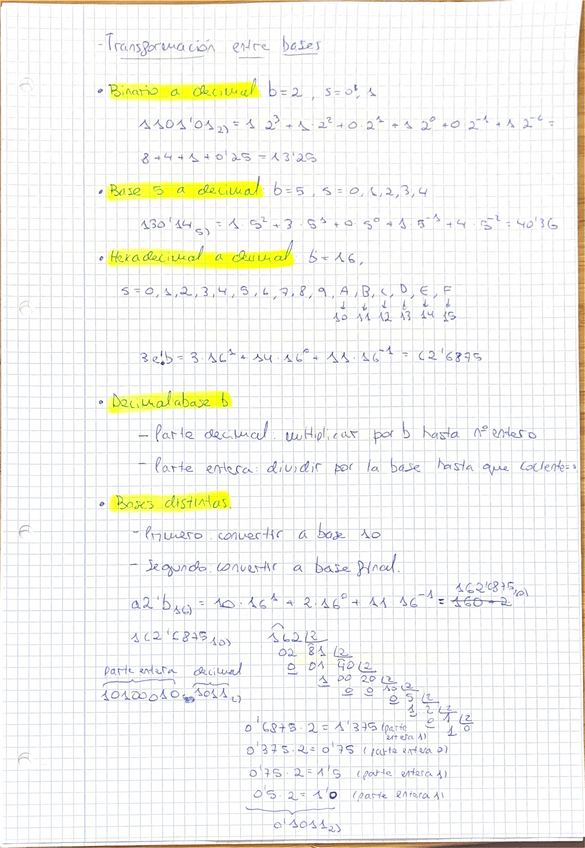 - Transformación entre bases
• Binario a decimal b=2, s=0,1
1101'01₂) = 1·2³ + 1·2² + 0·2¹ + 1·2⁰ + 0·2⁻¹ + 1·2⁻² =
8+4+1+0'25 = 13'25
• Base 5 a decimal b=5, s=0,1,2,3,4
130'14₅) = 1·5² + 3·5¹ + 0·5⁰ + 1·5⁻¹ + 4·5⁻² = 40'36
• Hexadecimal a decimal b=16,
s=0,1,2,3,4,5,6,7,8,9, A, B, C, D, E, F
↓ ↓ ↓ ↓ ↓ ↓
10 11 12 13 14 15
3e'b = 3·16¹ + 14·16⁰ + 11·16⁻¹ = 62'6875
• Decimal a base b
- Parte decimal: multiplicar por b hasta nº entero
- Parte entera: dividir por la base hasta que cociente=
• Bases distintas
- Primero convertir a base 10
- Segundo convertir a base final.
162'6875₁₀)
a2'b₁₆) = 10·16¹ + 2·16⁰ + 11·16⁻¹ = 160+2
162'6875₁₀) 162 |2
02 81 |2
0 01 40 |2
parte entera decimal 1 00 20 |2
0 0 10 |2
10100010, 1011₂) 0 5 |2
1 2 |2
0 1 |2
1 0
0'6875·2 = 1'375 (parte entera 1)
0'375·2 = 0'75 (parte entera 0)
0'75·2 = 1'5 (parte entera 1)
0'5·2 = 1'0 (parte entera 1)
0'1011₂)